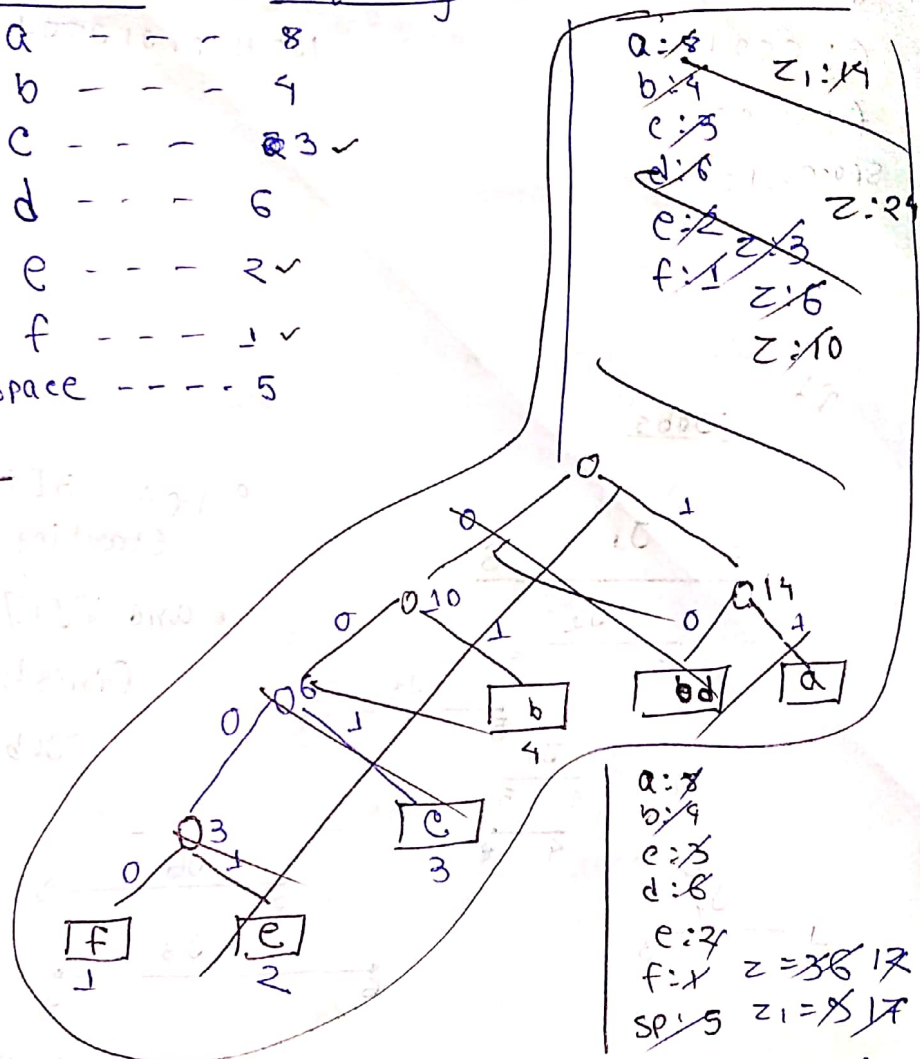 a - - - 8
b - - - 4
c - - - 3 ✓
d - - - 6
e - - - 2 ✓
f - - - 1 ✓
space - - - - 5
a:8
b:4
c:3
d:6
e:2
f:1
z₁:14
z:24
z:3
z:6
z:10
0 1
10 14
0 1 0 1
6 b d a
4
0 1
3 c
3
0 1
f e
1 2
a:8
b:4
c:3
d:6
e:2
f:1 z = 17
sp:5 z₁ = 17